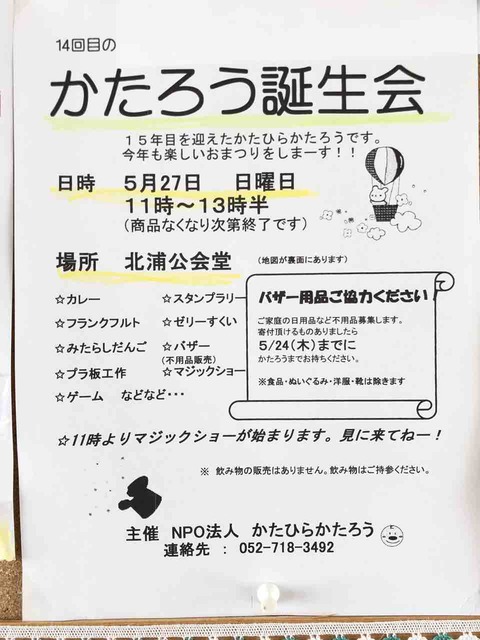 14回目の
かたろう誕生会
１５年目を迎えたかたひらかたろうです。
今年も楽しいおまつりをしまーす！！
日時　５月27日　日曜日
11時～13時半
（商品なくなり次第終了です）
場所　北浦公会堂　（地図が裏面にあります）
☆カレー　☆スタンプラリー
☆フランクフルト　☆ゼリーすくい
☆みたらしだんご　☆バザー
（不用品販売）
☆プラ板工作　☆マジックショー
☆ゲーム　などなど･･･
バザー用品ご協力ください！
ご家庭の日用品など不用品募集します。
寄付頂けるものありましたら
5/24(木)までに
かたろうまでお持ちください。
※食品・ぬいぐるみ・洋服・靴は除きます
☆11時よりマジックショーが始まります。見に来てねー！
※　飲み物の販売はありません。飲み物はご持参ください。
主催　NPO法人　かたひらかたろう
連絡先　：　052-718-3492